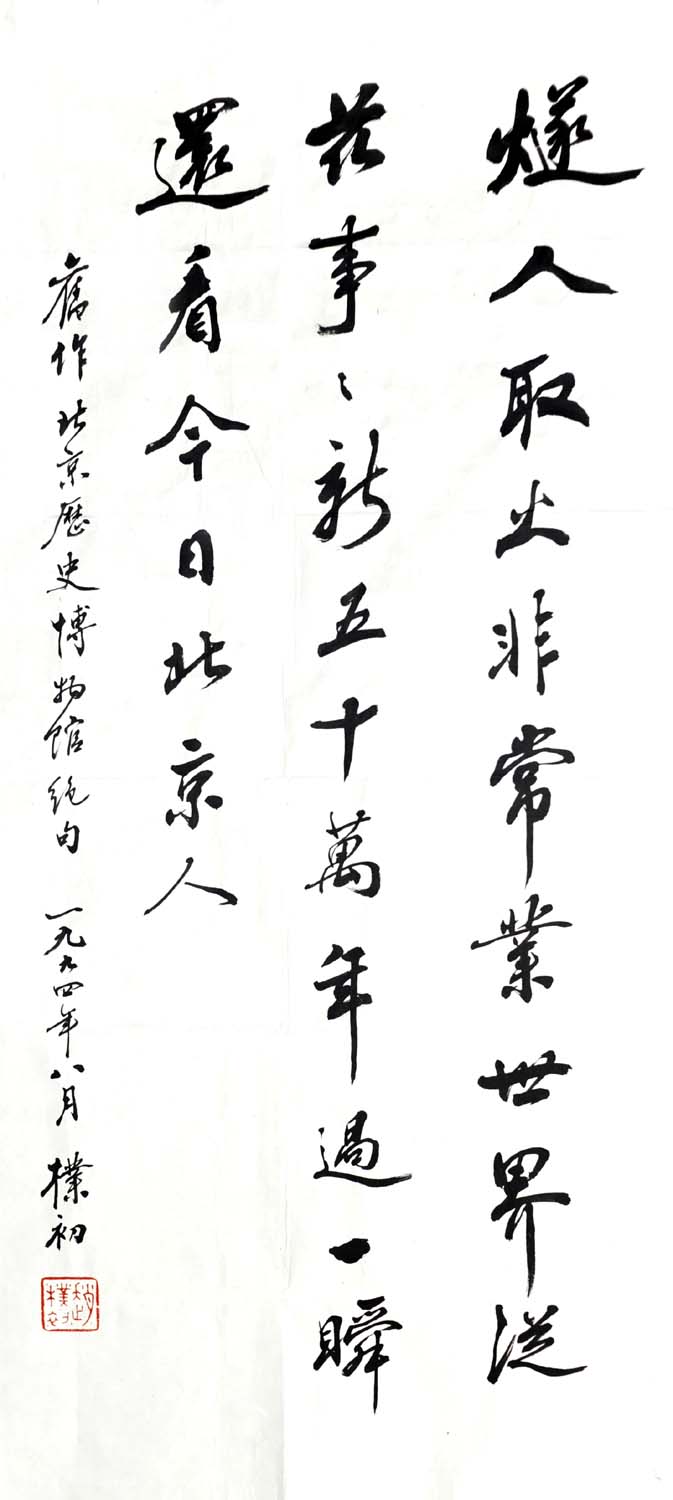 燧人取火非常業世界從
茲事〻新五十萬年過一瞬
還看今日北京人
舊作北京歷史博物館絕句 一九九四年八月 樸初
趙樸初